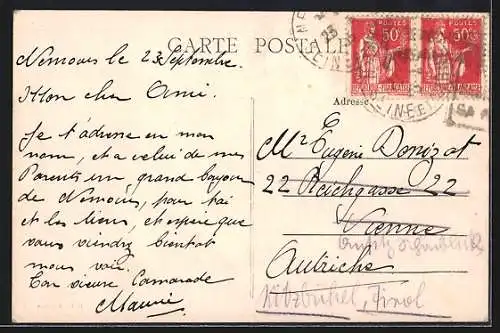 CARTE POSTALE
Nemours le 23 Septembre.
Mon cher Ami.
Je t'adresse en mon
nom, et a celui de mes
Parents un grand bonjour
de Nemours, pour toi
et les tiens, et espère que
vous viendrez bientôt
nous voir.
Ton vieux Camarade
Maurice
POSTES
50c
POSTES
50c
Adresse
Mr Eugène Donizot
22 Reichgasse 22
Vienne
Autriche
Kitzbühel, Tirol